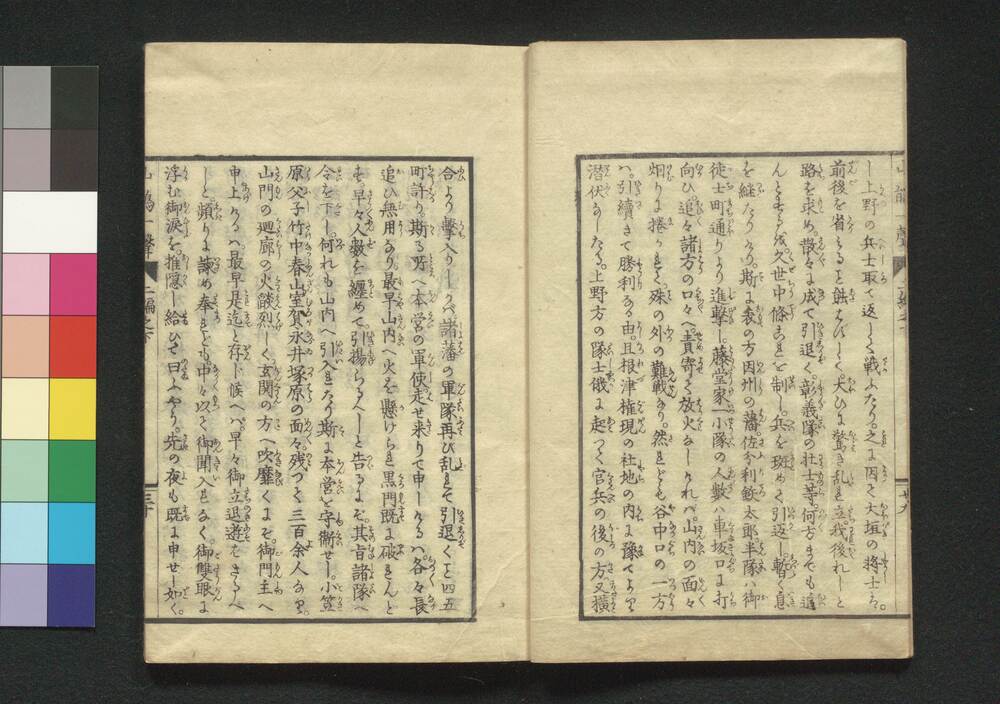 し上野の兵士取て返しくて戦ふたり。之に因て大垣の将士ら。
前後を省みるに蝕はしく。大ひに驚き乱れ立我後れじと
路を求め。散々に成て引退く。彰義隊の壮士等。何方までも追
んとするを。久世中條これを制し。兵を斑めて引返し。暫く息
を継たりけり。斯に表の方因州の藩佐分利鋭太郎。半隊ハ御
徒士町通りより進撃し。藤堂家一小隊の人數ハ車坂口に打
向ひ追々諸方の口々へ責寄て放火なしけれバ。山内の面々
烟りに捲かれて。殊の外の難戦なり。然れども谷中口の一方
ハ。引續きて勝利なる由。且根津権現の社地の内に豫てより
潜伏なしたる。上野方の隊士俄に起つて官兵の後の方又横
合より撃入りしかバ諸藩の軍隊再び乱れて引退くこと四五
町許り。斯る所へ本営の軍使走せ来りて申しけるハ。各々長
追ひ無用なり。最早山内へ火を懸けられ黒門既に破れんと
す早々人數を纏めて引揚らるべしと告るにぞ。其旨諸隊へ
令を下し。何れも山内へ引入れたり斯て本営を守衛せし。小笠
原父子竹中春山室賀永井塚原の面々。残づて三百余人なり。
山門の廻廊の火燄烈しく玄関の方へ吹靡くにぞ。御門主へ
申上けるハ。最早是迄と存じ候へバ。早々御立退遊をさるべ
しと頻りに諫め奉れども。中々以て御聞入もなく。御雙眼に
浮む御涙を。推隠し給ひて曰ふやう。先の夜も既に申せし如く。